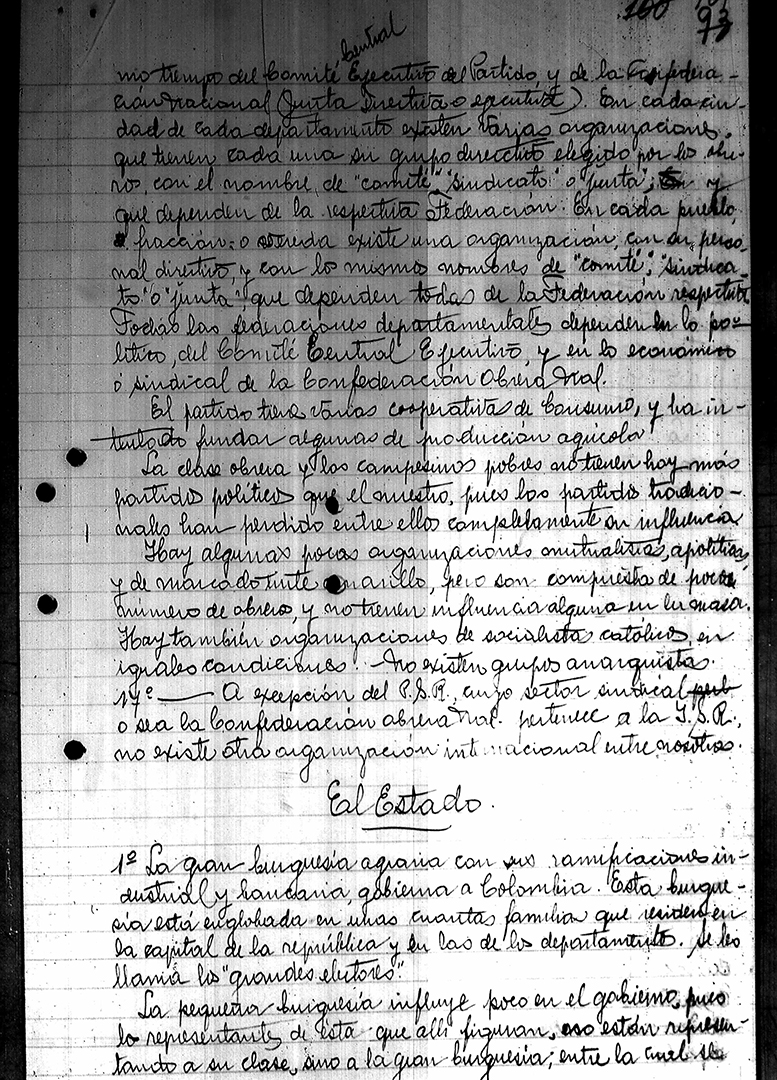 160
93
Central
mo tiempo del Comité Ejecutivo del Partido, y de la Confedera-
ción Nacional (Junta Directiva o ejecutiva). En cada ciu-
dad de cada departamento existen varias organizaciones,
que tienen cada una su grupo directivo elegido por los obre-
ros, con el nombre de "comité", "sindicato" o "junta", y
que dependen de la respectiva Federación. En cada pueblo,
fracción o vereda existe una organización, con su perso-
nal directivo, y con los mismos nombres de "comité", "sindica-
to" o "junta", que dependen todas de la Federación respectiva.
Todas las federaciones departamentales dependen en lo po-
lítico, del Comité Central Ejecutivo, y en lo económico
ó sindical de la Confederación Obrera Nal.
El partido tiene varias cooperativas de Consumo, y ha in-
tentado fundar algunas de producción agrícola.
La clase obrera y los campesinos pobres no tienen hoy más
partido político que el nuestro, pues los partidos tradicio-
nales han perdido entre ellos completamente su influencia.
Hay algunas pocas organizaciones mutualistas, apolíticas,
y de marcado tinte amarillo, pero son compuesta de poco
número de obreros, y no tienen influencia alguna en la masa.
Hay también organizaciones de socialistas católicos, en
iguales condiciones. - No existen grupos anarquistas.
17º — A excepción del P.S.R., cuyo sector sindical
o sea la Confederación obrera Nal. pertenece a la I.S.R.,
no existe otra organización internacional entre nosotros.
El Estado.
1º La gran burguesía agraria con sus ramificaciones in-
dustrial y bancaria, gobierna a Colombia. Esta burgue-
sía está englobada en unas cuantas familias que residen en
la capital de la república y en las de los departamentos. Se les
llama los "grandes electores".
La pequeña burguesía influye poco en el gobierno, pues
los representantes de esta que allí figuran, no están represen-
tando a su clase, sino a la gran burguesía; entre la cual se